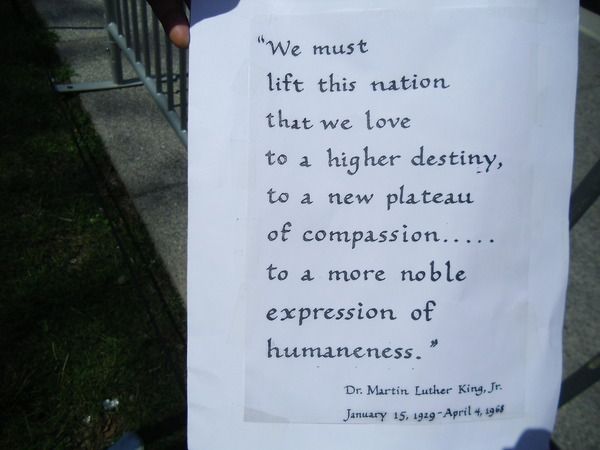 “We must
lift this nation
that we love
to a higher destiny,
to a new plateau
of compassion.....
to a more noble
expression of
humaneness.”
Dr. Martin Luther King, Jr.
January 15, 1929 - April 4, 1968